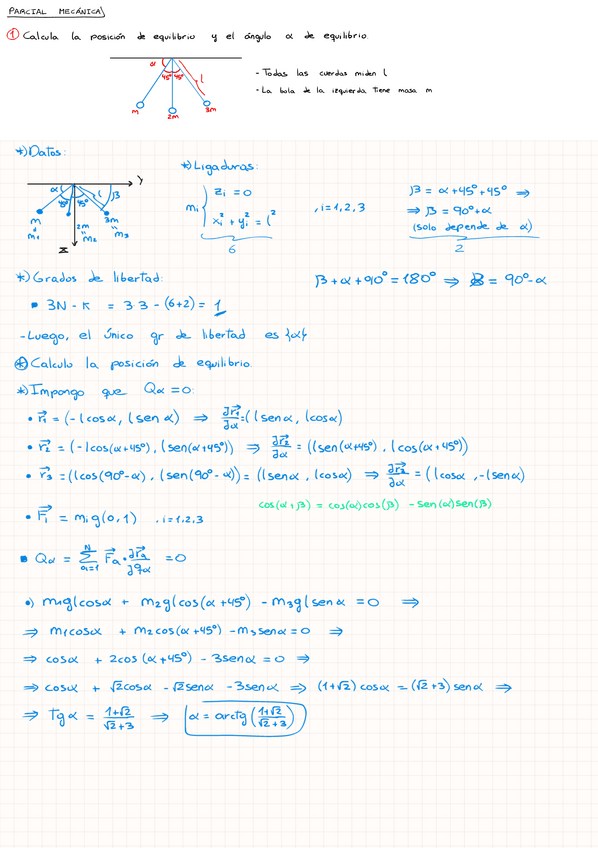 PARCIAL MECÁNICA
① Calcula la posición de equilibrio y el ángulo α de equilibrio
α 45° 45° l
m 2m 3m
- Todas las cuerdas miden l
- La bola de la izquierda tiene masa m
*) Datos:
α 45° 45° l β y
m 2m 3m
m₁ m₂ m₃
z
*) Ligaduras:
mᵢ { zᵢ = 0
xᵢ² + yᵢ² = l² , i = 1, 2, 3
6
β = α + 45° + 45° ⇒
⇒ β = 90° + α
(solo depende de α)
2
*) Grados de libertad:
▪ 3N - K = 3·3 - (6+2) = 1
β + α + 90° = 180° ⇒ β = 90° - α
- Luego, el único gr de libertad es {α}
*) Calculo la posición de equilibrio
*) Impongo que Qα = 0:
• r⃗₁ = (-l cosα, l sen α) ⇒ ∂r⃗₁/∂α = (l senα, l cosα)
• r⃗₂ = (-l cos(α+45°), l sen(α+45°)) ⇒ ∂r⃗₂/∂α = (l sen(α+45°), l cos(α+45°))
• r⃗₃ = (l cos(90°-α), l sen(90°-α)) = (l senα, l cosα) ⇒ ∂r⃗₃/∂α = (l cosα, -l senα)
cos(α+β) = cos(α)cos(β) - sen(α)sen(β)
• F⃗ᵢ = mᵢg(0,1) , i = 1, 2, 3
▪ Qα = Σ F⃗a · ∂r⃗a/∂qα = 0
N
a=1
•) m₁gl cosα + m₂gl cos(α+45°) - m₃gl senα = 0 ⇒
⇒ m₁cosα + m₂cos(α+45°) - m₃senα = 0 ⇒
⇒ cosα + 2cos(α+45°) - 3senα = 0 ⇒
⇒ cosα + √2cosα - √2senα - 3senα ⇒ (1+√2)cosα = (√2+3)senα ⇒
⇒ Tgα = (1+√2)/(√2+3) ⇒ α = arctg((1+√2)/(√2+3))